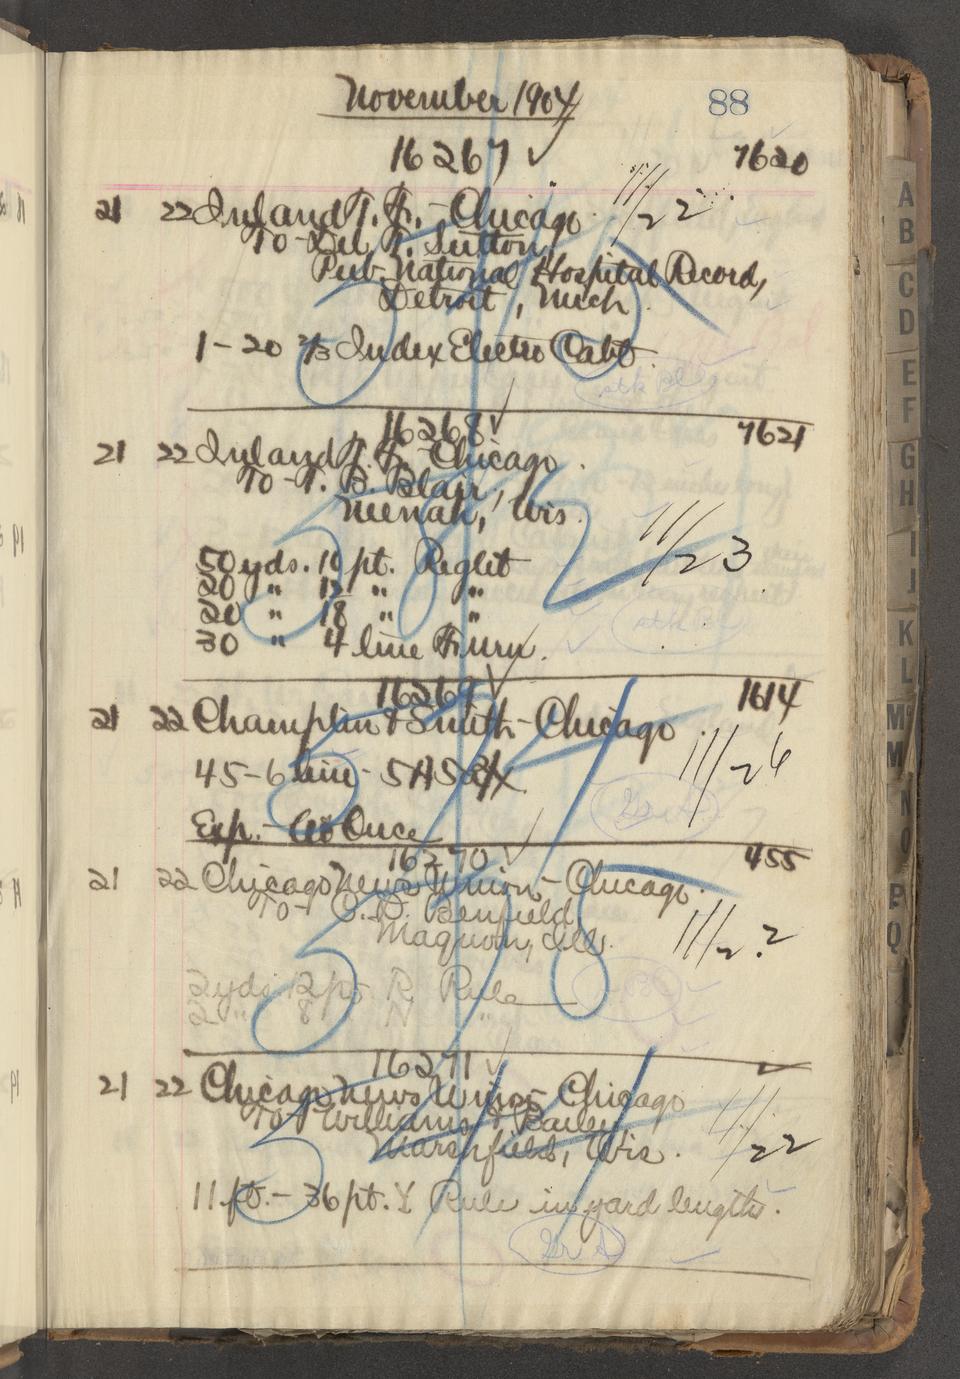 November 1904
88
16267 ✓
7620
21 22 Inland T. F. - Chicago 11/22
To - Del T. Sutton,
Pub. National Hospital Record,
Detroit, Mich
1 - 20 2/3 Index Electro Cabt.
stk
16268 ✓
7621
21 22 Inland T. F. - Chicago
To - T. B. Blair,
Neenah, Wis.
11/23
50 yds. 10 pt. Reglet
20 " 12 " "
20 " 18 " "
30 " 4 line Furn.
stk
16269 ✓
1614
21 22 Champlin & Smith - Chicago
11/26
45 - 6 line -
Exp. - At Once
16270 ✓
455
21 22 Chicago News Union - Chicago.
To - Benfield,
Maquon, Ills.
11/22
2 yds. 12 pt. R. Rule
2 " 8 " "
16271 ✓
21 22 Chicago News Union - Chicago
To - Williams & Bailey,
Marshfield, Wis.
11/22
11 ft. - 36 pt. Rule in yard lengths.
A
B
C
D
E
F
G
H
I
J
K
L
M
M
N
O
P
Q